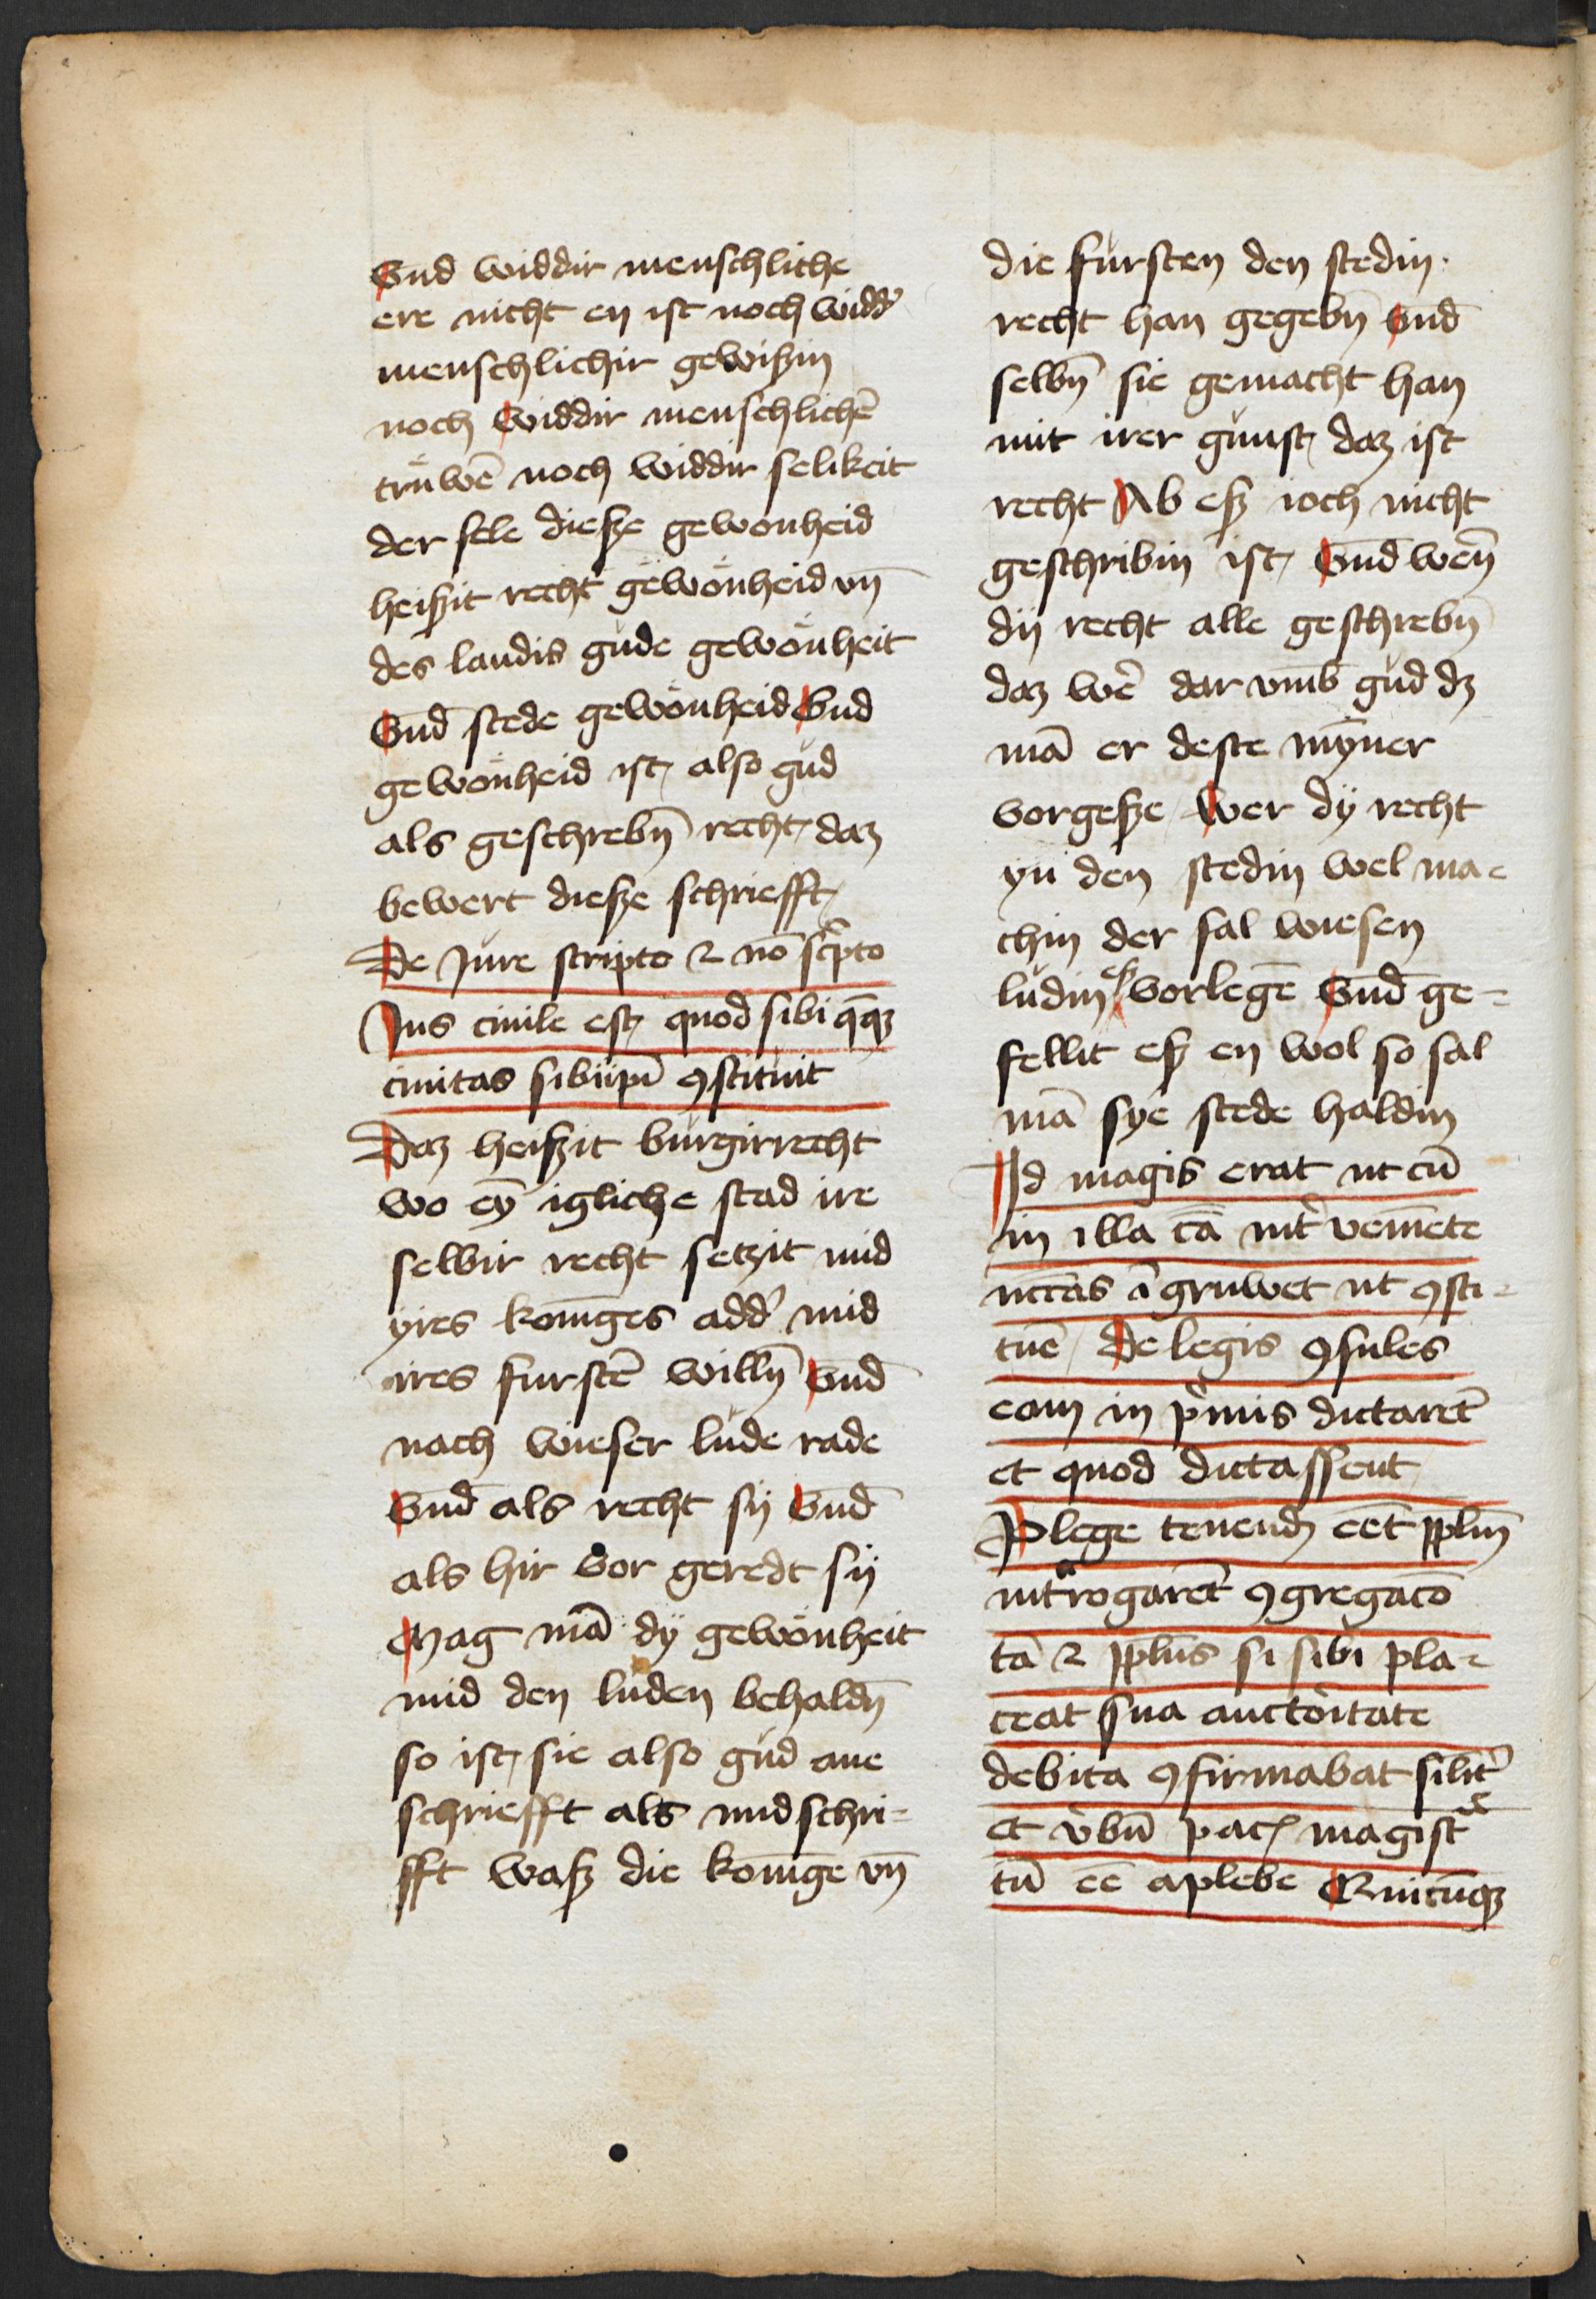 Vnd widdir menschliche
ere nicht en ist noch widd͛
menschlichir gewißin
noch widdir menschlichē
truwē noch widdir selikeit
der sele dieße gewonheid
heißit recht gewonheid vn̄
des landis gude gewonheit
Vnd̄ stede gewonheid Vnd
gewonheid ist also gud
als geschrebn̄ recht daz
bewert dieße schriefft
De Jure scripto ⁊ nō sc͛pto
Jus ciuile est quod sibi q̄qꝫ
ciuitas sibiip̄i ꝯstituit
Daz heißit burgirrecht
wo eȳ igliche stad ire
selbir recht setzit mid
yres konīges add͛ mid
ires furstē willn̄ Vnd̄
nach wieser lude rade
Vnd̄ als recht sij Vnd̄
als hir vor geredt sij
Mag mā dy gewonheit
mid den luden behaldn̄
so ist sie also gud ane
schriefft als mid schri=
fft waß die konīge vn̄
die fursten den stedin.
recht han gegebn̄ Vnd̄
selbn̄ sie gemacht han
mit irer gunst daz ist
recht Ab eß ioch nicht
geschribin ist Vnd̄ wen̄
dij recht alle geschrebn̄
daz we͛ dar vm̄b gud dz
mā er deste mȳner
vorgeße Wer dy recht
yn den stedin wel ma=
chin der sal wiesen
ludin eß vorlegē Vnd̄ ge=
fellit eß en wol so sal
mā sye stede haldin
Id magis erat ut cū
in illa cā int͛ veniēte
ncc̄as īgruwet ut ꝯsti=
tuē De legis ꝯsules
eam in p͛mis dictarēt
et quod dictassent
P lege tenend̄ eēt pplm̄
int͛rogarēt ꝯgregacō
tā ⁊ pplus si sibi pla=
ceat sua auctoritate
debita ꝯfirmabat silit͛
et v͛bū pacꝭ magistra
tū eē a plebe Quicūqꝫ